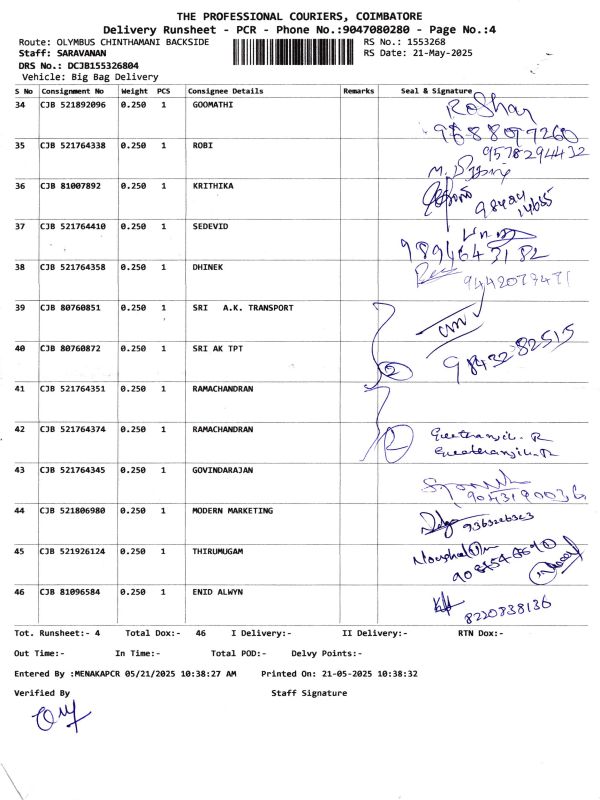 THE PROFESSIONAL COURIERS, COIMBATORE
Delivery Runsheet - PCR - Phone No.:9047080280 - Page No.:4
Route: OLYMBUS CHINTHAMANI BACKSIDE RS No.: 1553268
Staff: SARAVANAN RS Date: 21-May-2025
DRS No.: DCJB155326804
Vehicle: Big Bag Delivery
S No Consignment No Weight PCS Consignee Details Remarks Seal & Signature
34 CJB 521892096 0.250 1 GOOMATHI Roshan
9688097260
35 CJB 521764338 0.250 1 ROBI 9578294432
36 CJB 81007892 0.250 1 KRITHIKA
37 CJB 521764410 0.250 1 SEDEVID
9894643182
38 CJB 521764358 0.250 1 DHINEK
9442079471
39 CJB 80760851 0.250 1 SRI A.K. TRANSPORT
40 CJB 80760872 0.250 1 SRI AK TPT 9843282515
2
41 CJB 521764351 0.250 1 RAMACHANDRAN
42 CJB 521764374 0.250 1 RAMACHANDRAN 2 Geetheranjili. R
Geetheranjili. R
43 CJB 521764345 0.250 1 GOVINDARAJAN
9043190036
44 CJB 521806980 0.250 1 MODERN MARKETING
45 CJB 521926124 0.250 1 THIRUMUGAM
46 CJB 81096584 0.250 1 ENID ALWYN
8220838136
Tot. Runsheet:- 4 Total Dox:- 46 I Delivery:- II Delivery:- RTN Dox:-
Out Time:- In Time:- Total POD:- Delvy Points:-
Entered By :MENAKAPCR 05/21/2025 10:38:27 AM Printed On: 21-05-2025 10:38:32
Verified By Staff Signature